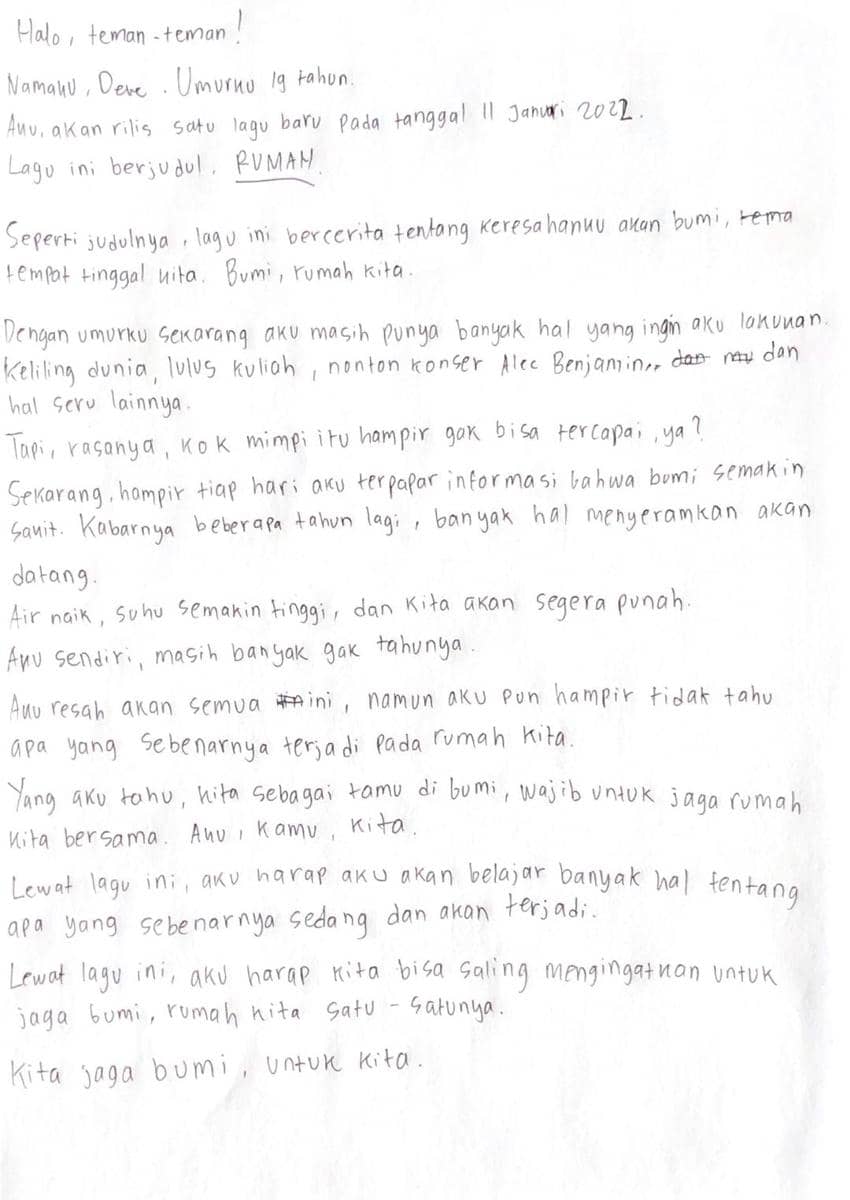 Halo, teman-teman!
Namaku, Deve. Umurku 19 tahun.
Aku, akan rilis satu lagu baru pada tanggal 11 Januari 2022.
Lagu ini berjudul, RUMAH.
Seperti judulnya, lagu ini bercerita tentang keresahanku akan bumi, tema
tempat tinggal kita. Bumi, rumah kita.
Dengan umurku sekarang aku masih punya banyak hal yang ingin aku lakukan.
Keliling dunia, lulus kuliah, nonton konser Alec Benjamin,, dan dan
hal seru lainnya.
Tapi, rasanya, kok mimpi itu hampir gak bisa tercapai, ya?
Sekarang, hampir tiap hari aku terpapar informasi bahwa bumi semakin
sakit. Kabarnya beberapa tahun lagi, banyak hal menyeramkan akan
datang.
Air naik, suhu semakin tinggi, dan kita akan segera punah.
Aku sendiri, masih banyak gak tahunya.
Aku resah akan semua ini, namun aku pun hampir tidak tahu
apa yang sebenarnya terjadi pada rumah kita.
Yang aku tahu, kita sebagai tamu di bumi, wajib untuk jaga rumah
kita bersama. Aku, kamu, kita.
Lewat lagu ini, aku harap aku akan belajar banyak hal tentang
apa yang sebenarnya sedang dan akan terjadi.
Lewat lagu ini, aku harap kita bisa saling mengingatkan untuk
jaga bumi, rumah kita satu-satunya.
Kita jaga bumi, untuk kita.